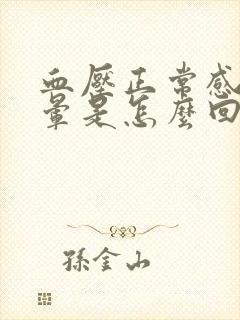 血壓正常感
暈是怎麼回
孫金山